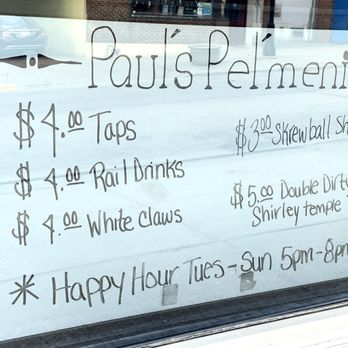 Paul's Pel'meni
$4.00 Taps
$3.00 Skrewball Sh
$4.00 Rail Drinks
$5.00 Double Dirty
Shirley temple
$4.00 White Claws
* Happy Hour Tues - Sun 5pm-8pm